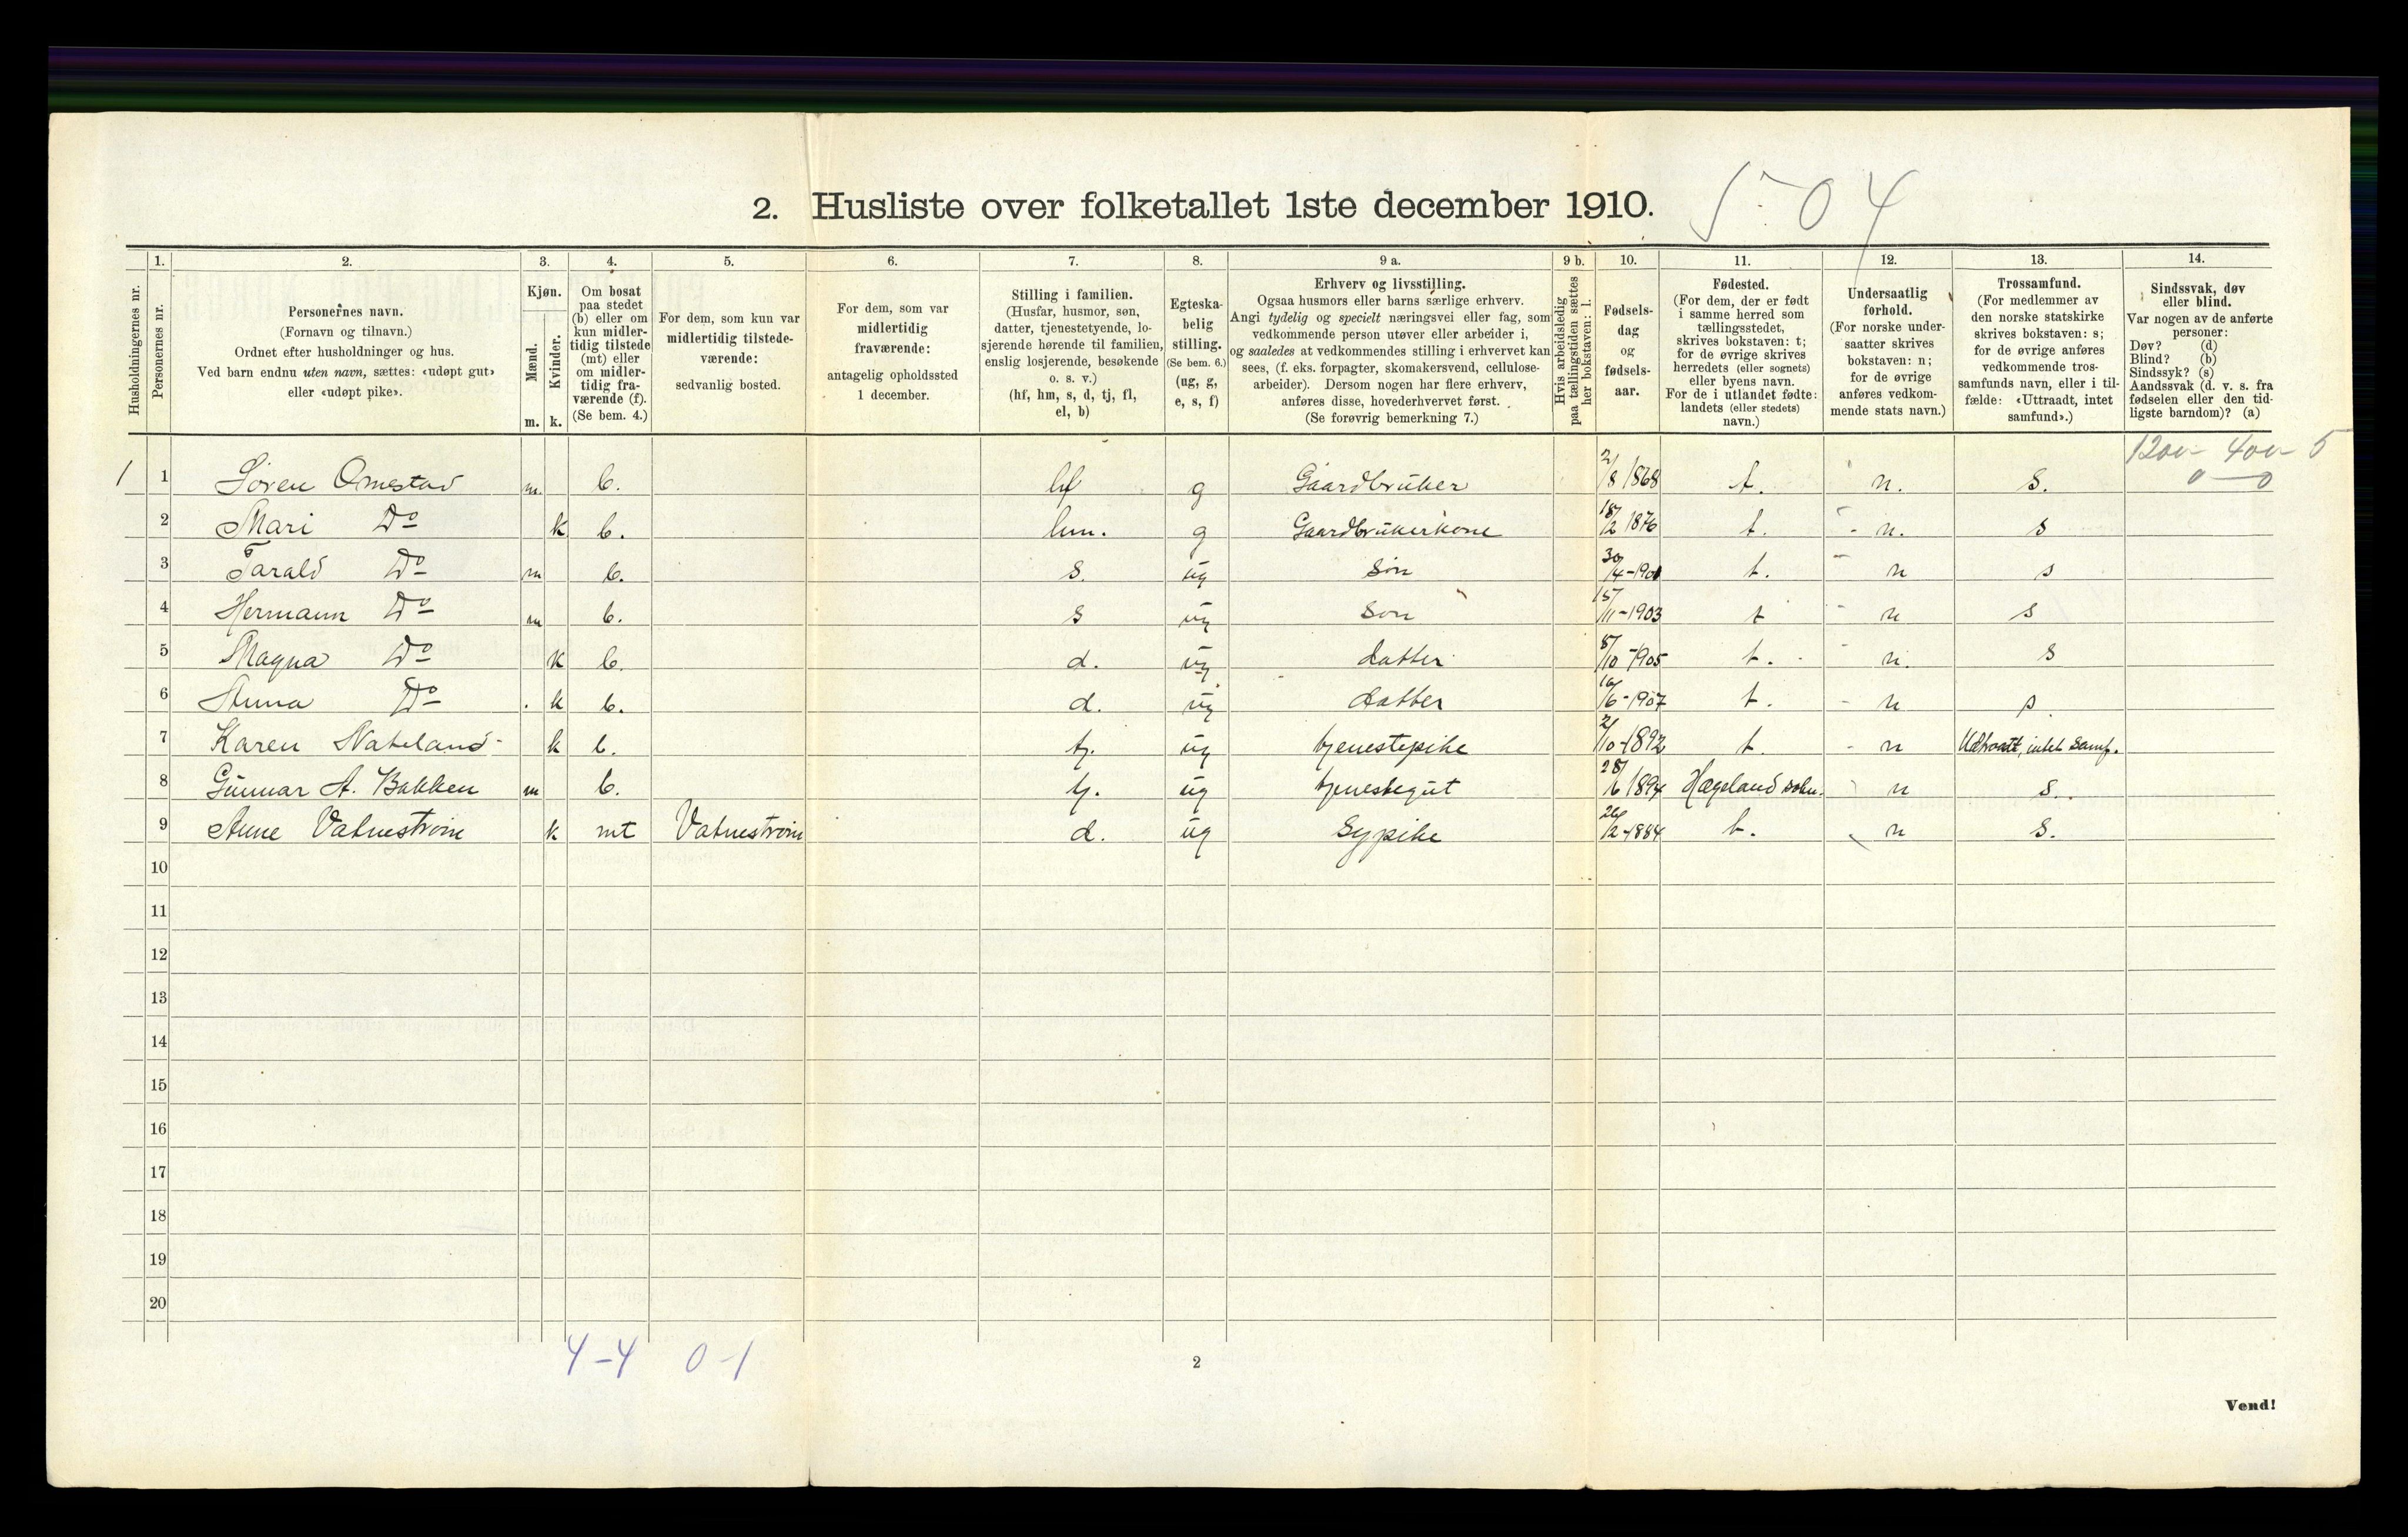 2. Husliste over folketallet 1ste december 1910.
5-04
Husholdningernes nr.
1.
Personernes nr.
2.
Personernes navn.
(Fornavn og tilnavn.)
Ordnet efter husholdninger og hus.
Ved barn endnu uten navn, sættes: «udøpt gut»
eller «udøpt pike».
3.
Kjøn.
Mænd.
Kvinder.
m. k.
4.
Om bosat
paa stedet
(b) eller om
kun midler-
tidig tilstede
(mt) eller
om midler-
tidig fra-
værende (f).
(Se bem. 4.)
5.
For dem, som kun var
midlertidig tilstede-
værende:
sedvanlig bosted.
6.
For dem, som var
midlertidig
fraværende:
antagelig opholdssted
1 december.
7.
Stilling i familien.
(Husfar, husmor, søn,
datter, tjenestetyende, lo-
sjerende hørende til familien,
enslig losjerende, besøkende
o. s. v.)
(hf, hm, s, d, tj, fl,
el, b)
8.
Egteska-
belig
stilling.
(Se bem. 6.)
(ug, g,
e, s, f)
9 a.
Erhverv og livsstilling.
Ogsaa husmors eller barns særlige erhverv.
Angi tydelig og specielt næringsvei eller fag, som
vedkommende person utøver eller arbeider i,
og saaledes at vedkommendes stilling i erhvervet kan
sees, (f. eks. forpagter, skomakersvend, cellulose-
arbeider). Dersom nogen har flere erhverv,
anføres disse, hovederhvervet først.
(Se forøvrig bemerkning 7.)
9 b.
Hvis arbeidsledig
paa tællingstiden sættes
her bokstaven: l.
10.
Fødsels-
dag
og
fødsels-
aar.
11.
Fødested.
(For dem, der er født
i samme herred som
tællingsstedet,
skrives bokstaven: t;
for de øvrige skrives
herredets (eller sognets)
eller byens navn.
For de i utlandet fødte:
landets (eller stedets)
navn.)
12.
Undersaatlig
forhold.
(For norske under-
saatter skrives
bokstaven: n;
for de øvrige
anføres vedkom-
mende stats navn.)
13.
Trossamfund.
(For medlemmer av
den norske statskirke
skrives bokstaven: s;
for de øvrige anføres
vedkommende tros-
samfunds navn, eller i til-
fælde: «Uttraadt, intet
samfund».)
14.
Sindssvak, døv
eller blind.
Var nogen av de anførte
personer:
Døv? (d)
Blind? (b)
Sindssyk? (s)
Aandssvak (d. v. s. fra
fødselen eller den tid-
ligste barndom)? (a)
1200 - 400 - 5
0 — 0
1 1 Søren Omestad m. b. hf g Gaardbruker 2/8 1868 t. n. s.
2 Mari Do k b. hm. g Gaardbrukerkone 18/2 1876 t. n. s
3 Tarald Do m b. s. ug søn 30/4-1901 t. n s
4 Hermann Do m b. s ug søn 15/11-1903 t n s
5 Magna Do k b. d. ug datter 8/10-1905 t. n. s
6 Anna Do k b. d. ug datter 16/6-1907 t. n s.
7 Karen Nateland k b. tj. ug tjenestepike 2/10-1892 t n Udtraatt, intet samf.
8 Gunnar A. Bakken m b. tj. ug tjenestegut 28/6 1894 Hægeland sokn. n s.
9 Anne Vatnestrøm k mt Vatnestrøm d. ug Sypike 26/2-1884 t. n s.
10
11
12
13
14
15
16
17
18
19
20
4-4 0-1
2
Vend!